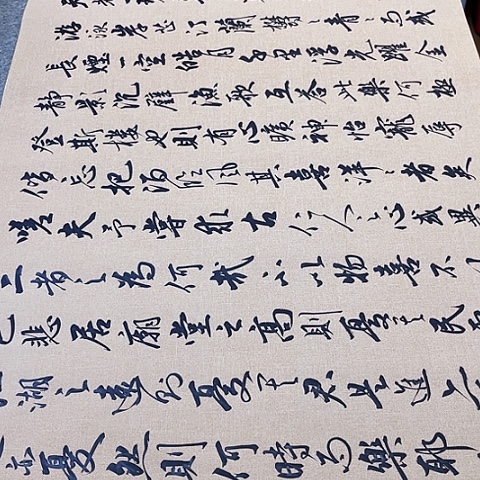 游泳岸芷汀蘭欝々青々而或
長煙一空皓月千里浮光躍金
靜影沉璧漁歌互答此樂何極
登斯樓也則有心曠神怡寵辱
偕忘把酒臨風其喜洋々者矣
嗟夫予嘗求古仁人之心或異
二者之為何哉不以物喜不
己悲居廟堂之高則憂其民
湖之遠則憂其君是進亦
憂然則何時而樂耶